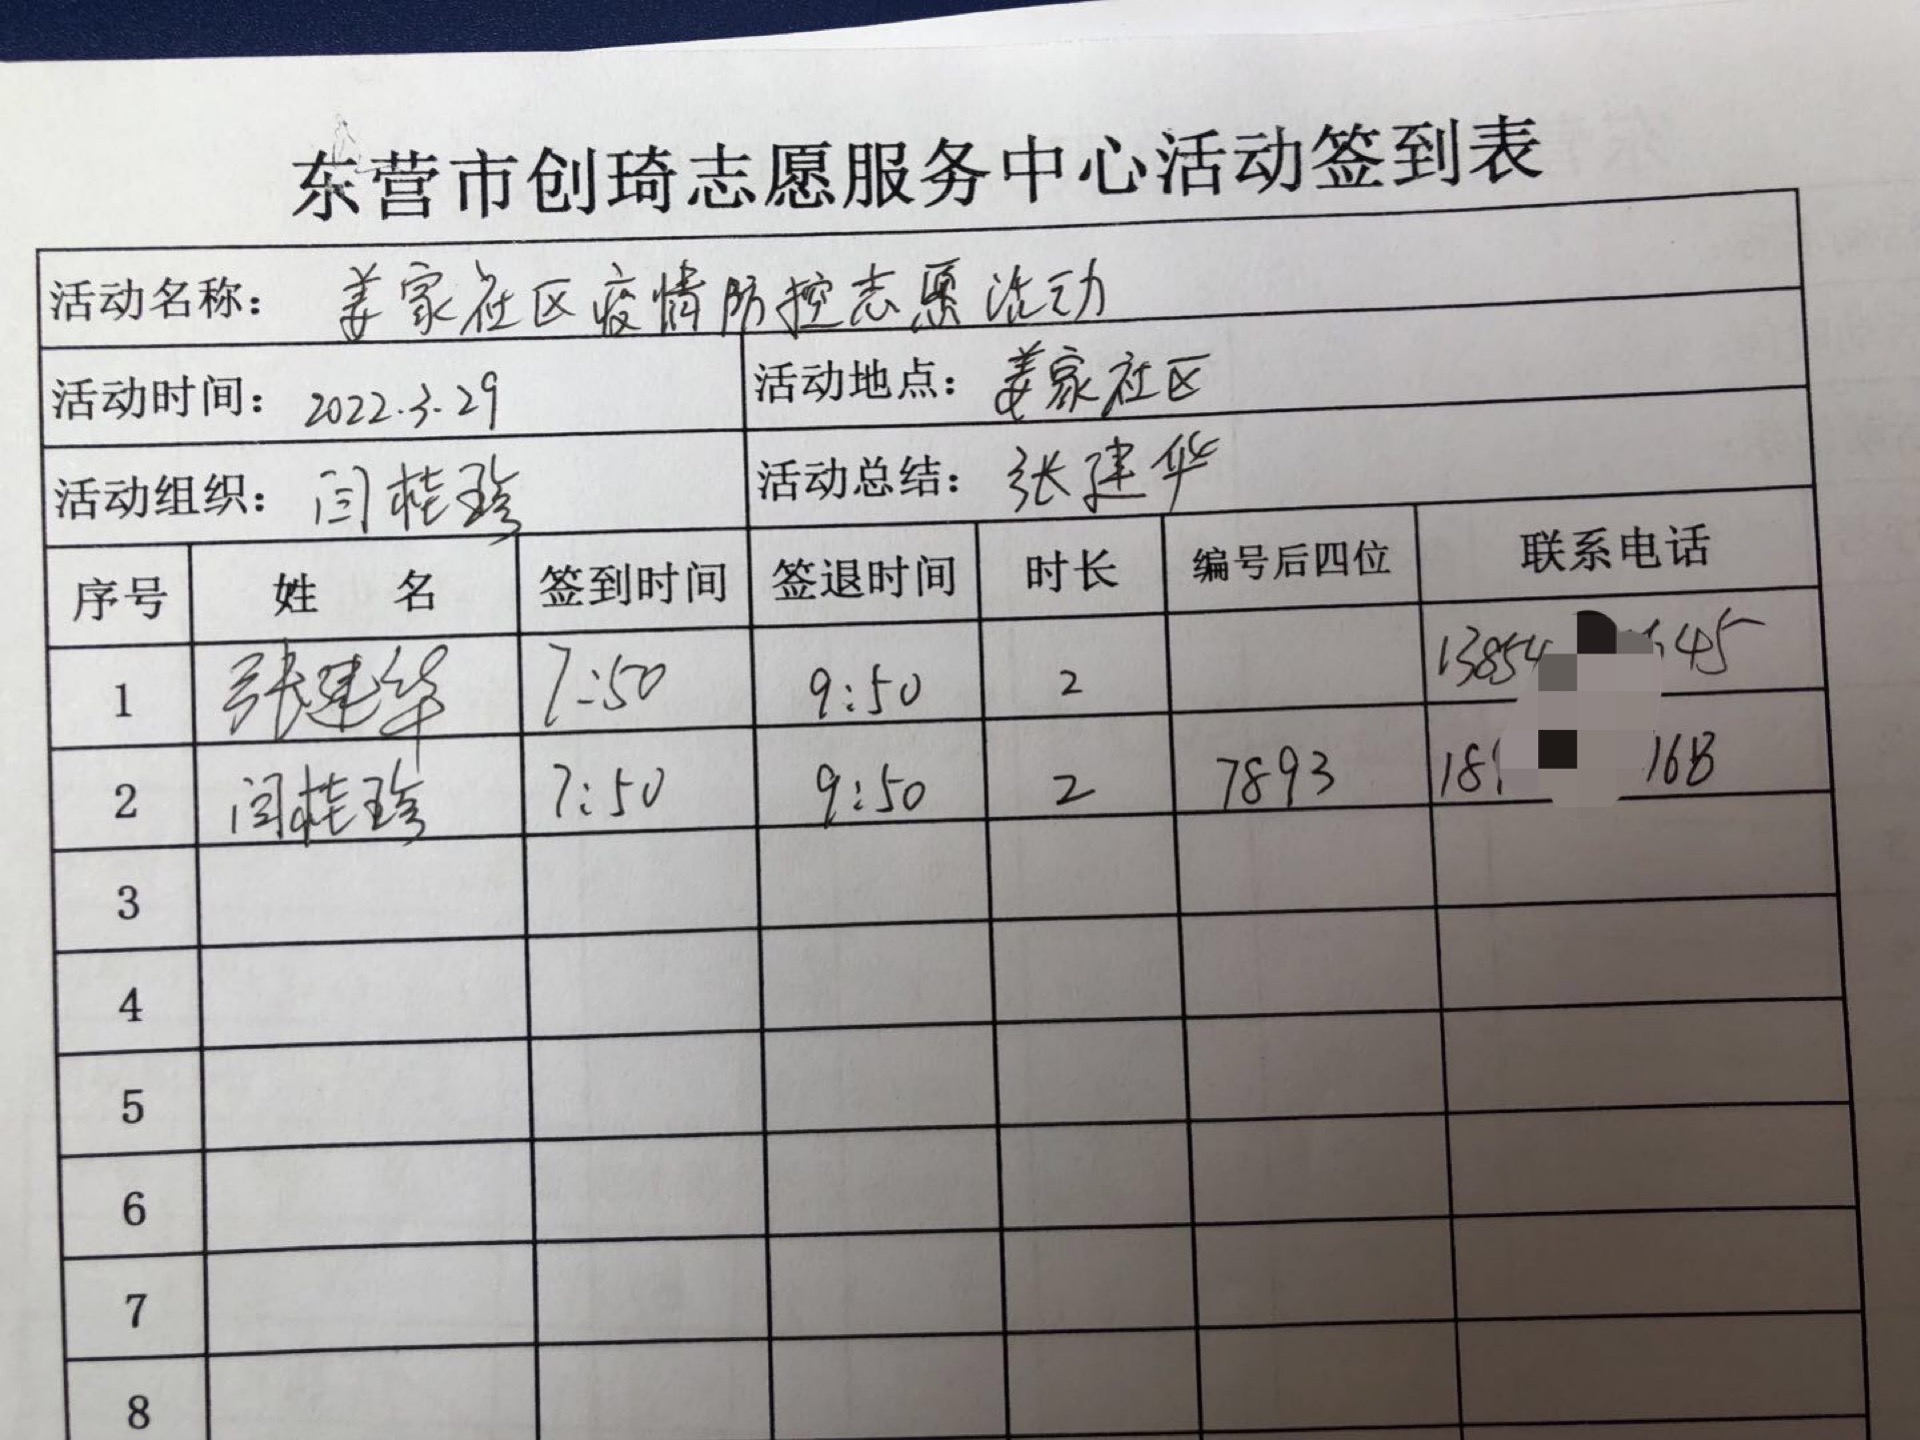 东营市创琦志愿服务中心活动签到表
活动名称： 姜家社区疫情防控志愿活动
活动时间： 2022.3.29 活动地点： 姜家社区
活动组织： 闫桂珍 活动总结： 张建华
序号 姓 名 签到时间 签退时间 时长 编号后四位 联系电话
1 张建华 7:50 9:50 2 13854 645
2 闫桂珍 7:50 9:50 2 7893 189 168
3
4
5
6
7
8